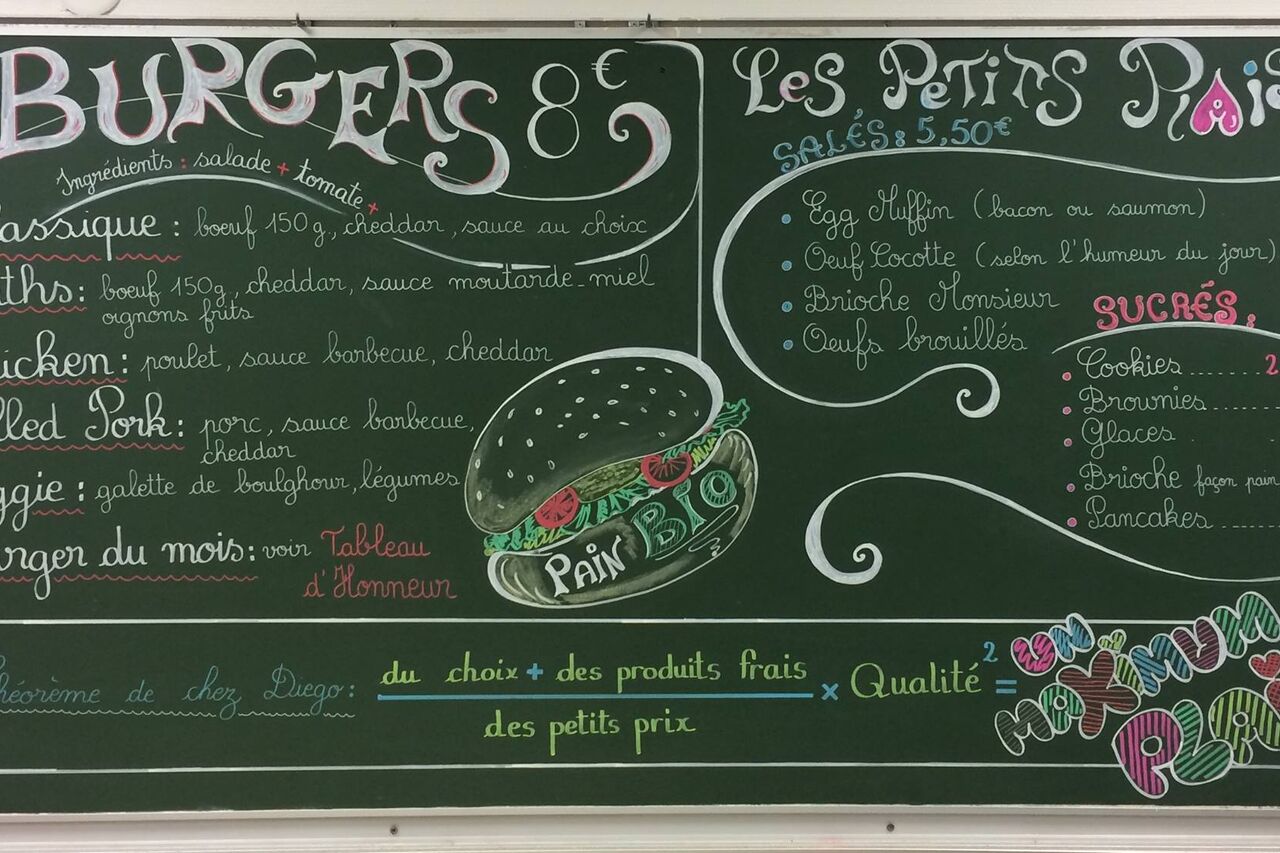 BURGERS 8€
Ingrédients : salade + tomate +
lassique : boeuf 150g., cheddar, sauce au choix
ths : boeuf 150g, cheddar, sauce moutarde-miel
oignons frits
icken : poulet, sauce barbecue, cheddar
lled Pork : porc, sauce barbecue,
cheddar
ggie : galette de boulghour, légumes
rger du mois : voir Tableau
d'Honneur
PAIN BIO
LES PETITS PLAIS
SALÉS : 5,50€
Egg Muffin (bacon ou saumon)
Oeuf Cocotte (selon l'humeur du jour)
Brioche Monsieur
Oeufs brouillés
SUCRÉS :
Cookies ....... 2
Brownies ......
Glaces .
Brioche façon pain
Pancakes ......
héorème de chez Diego :
du choix + des produits frais
des petits prix
x Qualité² =
UN MAXIMUM
MAXIMUM
PLA